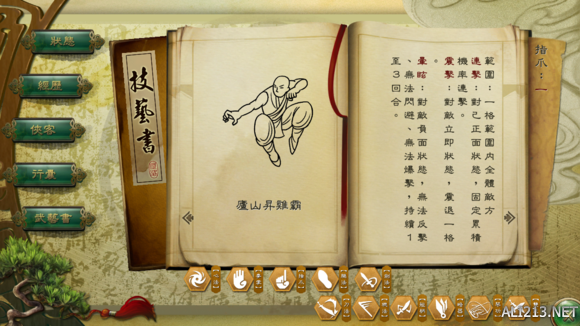 狀態
經歷
俠客
行囊
武藝書
技藝書
廬山昇雞霸
指爪：一
範圍：一格範圍內全體敵方
連擊：對己正面狀態，固定累積
機率連擊。
震擊：對敵立即狀態，震退一格
。
暈眩：對敵負面狀態，無法反擊
、無法閃避、無法爆擊，持續1
至3回合。
ALI213.NET